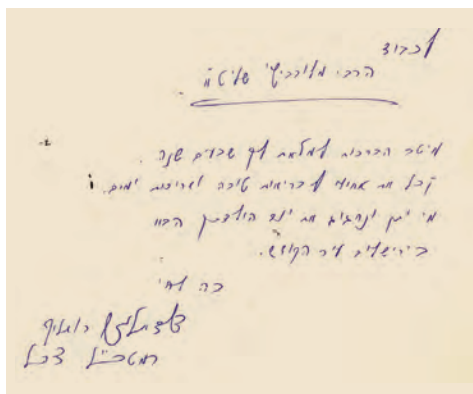 לכבוד
הרבי מלובביץ' שליט"א
מיטב הברכות למלאת לך שבעים שנה.
קבל את איחולי לבריאות טובה ואריכות ימים.
מי יתן ונחגוג את יום הולדתך הבא
בירושלים עיר הקודש.
כה לחי
רב אלוף
רמטכ"ל צהל